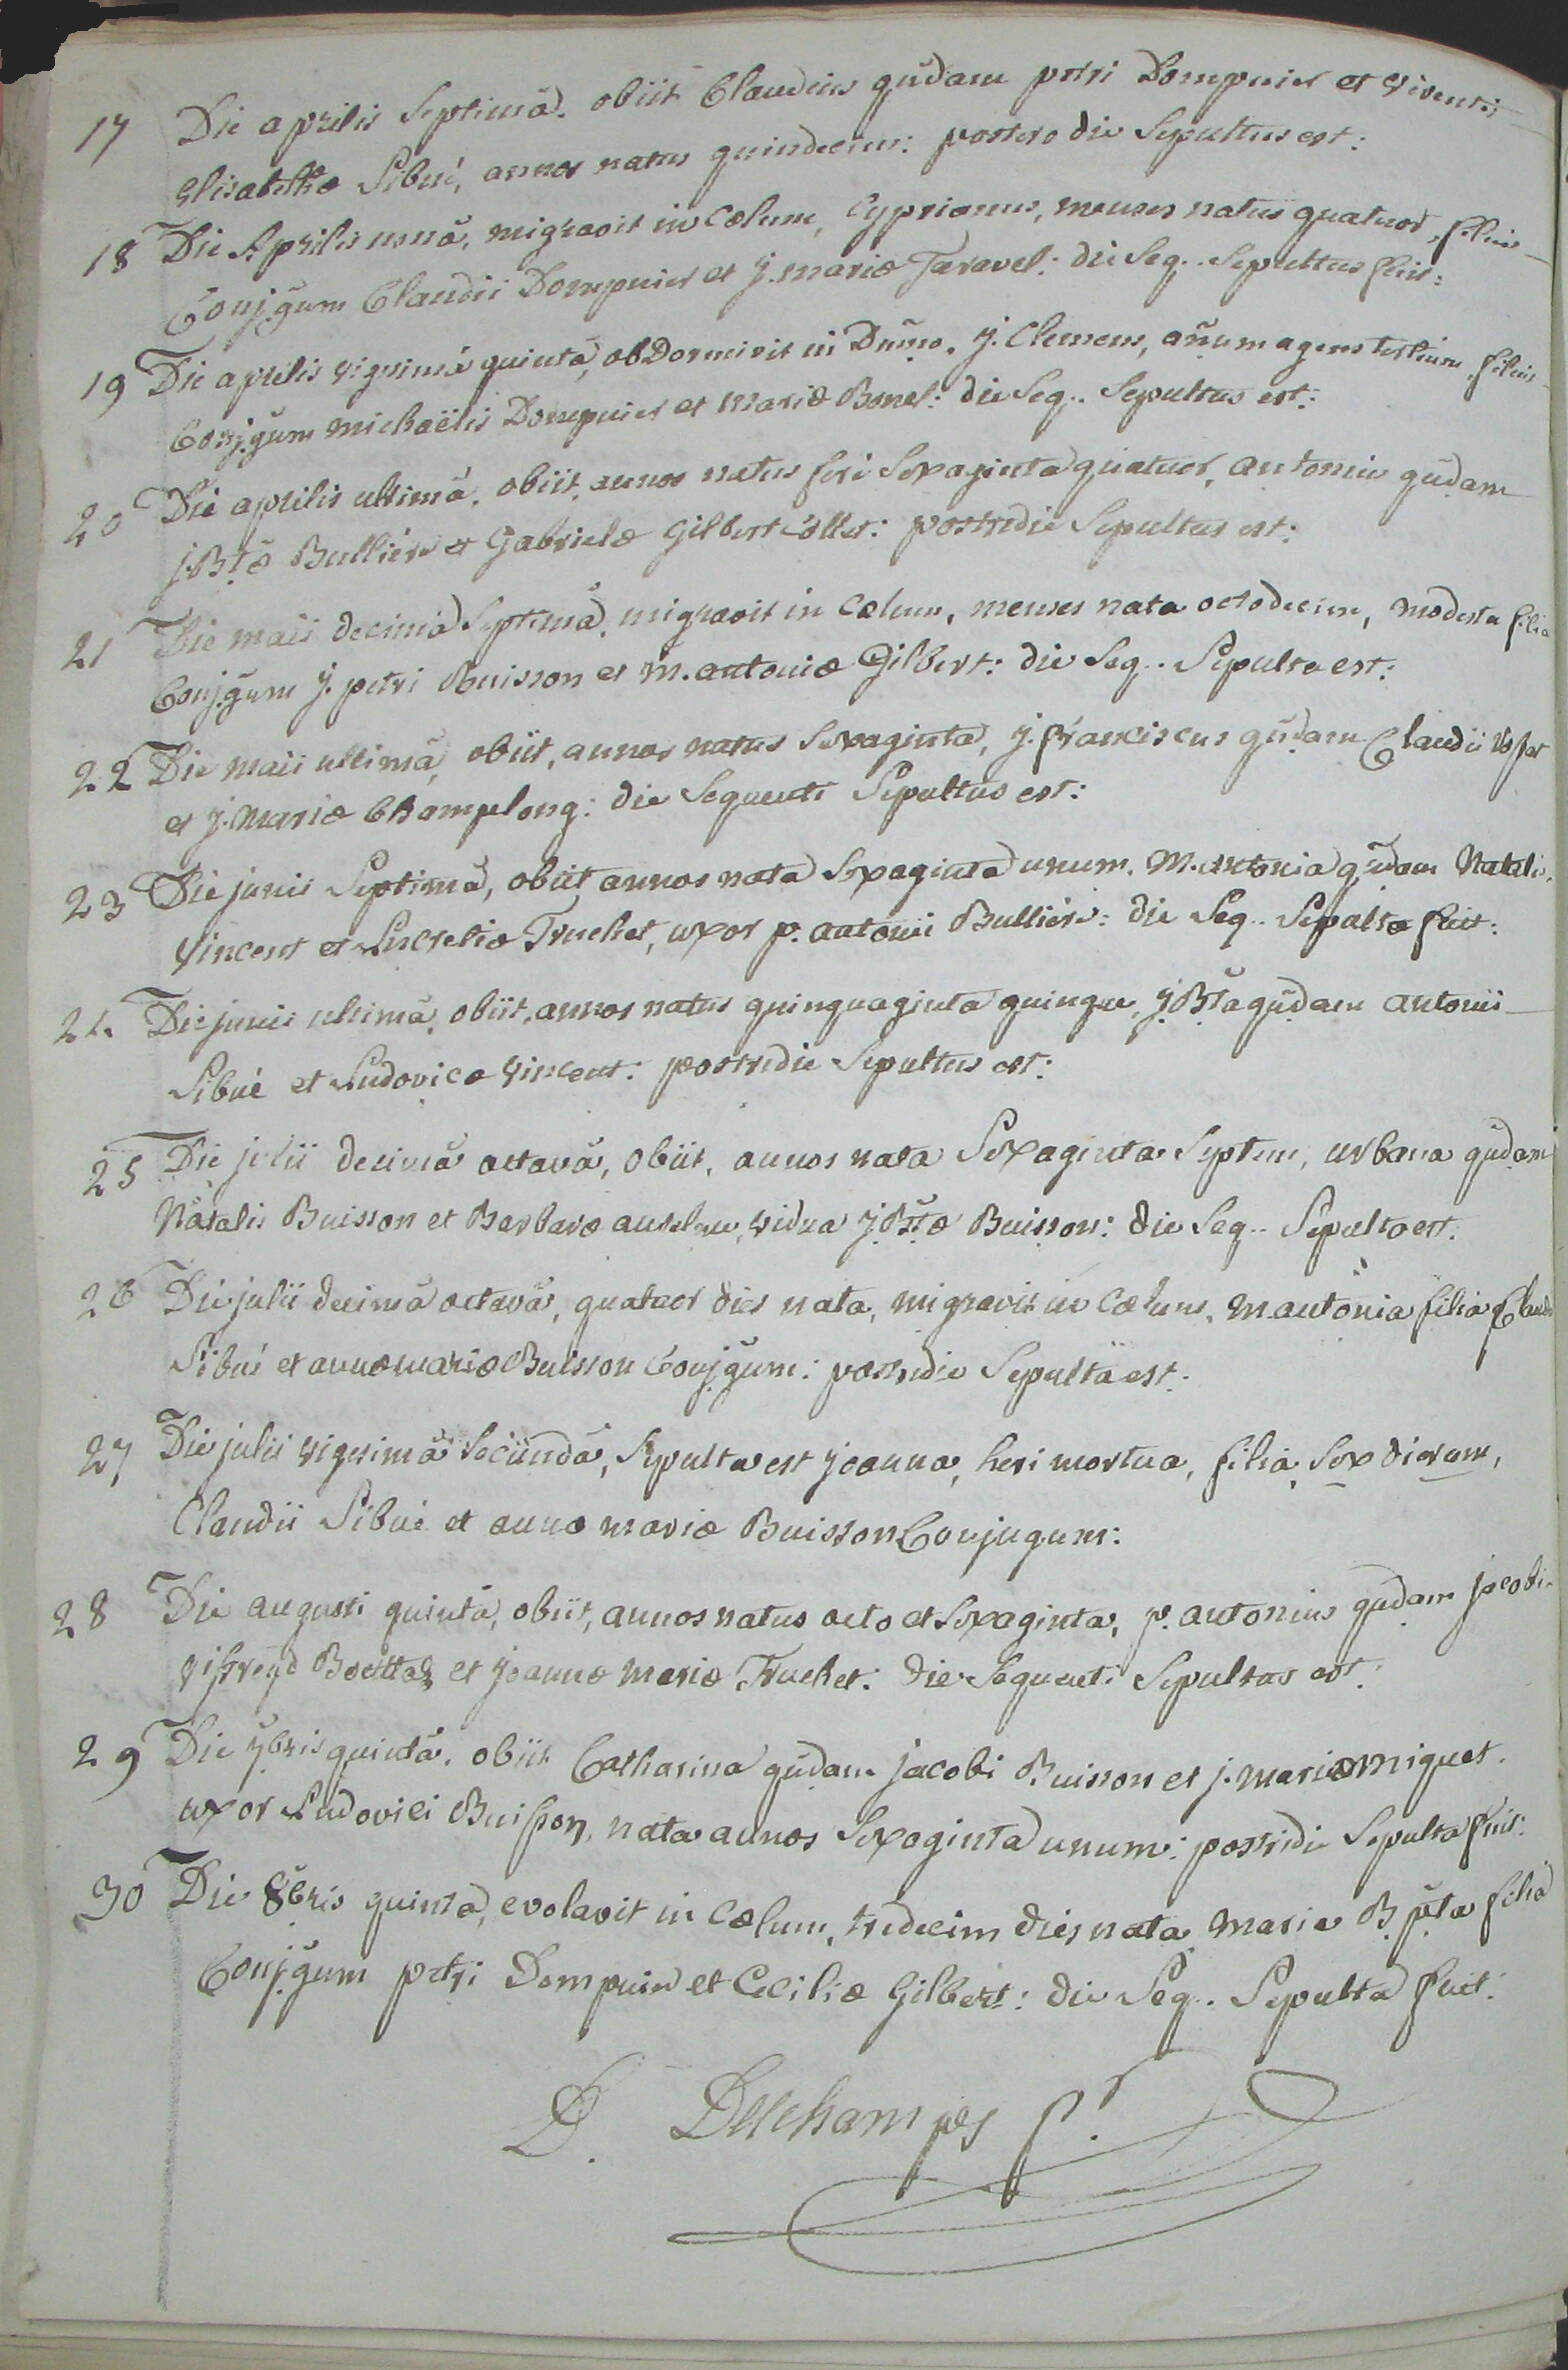 17 Die aprilis Septimâ. obiit Claudius qũdam petri Dompnier et viventis
Elisabethæ Sibué, annos natus quindecim: postero die Sepultus est:
18 Die Aprilis nonâ, migravit in Cælum, Cyprianus, menses natus quatuor, filius
Conjgum Claudii Dompnier et j. mariæ Taravel: die Seq.. Sepultus fuit:
19 Die aprilis vigesimâ quintâ, obDormivit in Dũno. j. Clemens, añum agens tertium, filius
Conjgum michaëlis Dompnier et mariæ Bonel: die Seq.. Sepultus est:
20 Die aprilis ultimâ, obiit, annos natus feré Sexaginta quatuor, antonius qũdam
j. Bta̋æ Bulliére et Gabrielæ Gilbert Collet: postridie Sepultus est:
21 Die maii decimâ Septimâ, migravit in Cælum, menses nata octodecim, modesta filia
Conjgum j. petri Buisson et m. antoniæ Gilbert: die Seq.. Sepulta est:
22 Die maii ultimâ, obiit, annos natus Sexaginta, j. franciscus qũdam Claudii
et j. mariæ Champlong: die Sequenti Sepultus est:
23 Die junii Septimâ, obiit annos nata Sexaginta unum, M. antonia qũdam Natalis
Vincent et Lucretiæ Truchet, uxor p. antonii Bulliére: die Seq.. Sepulta fuit:
24 Die junii ultimâ, obiit, annos natus quinquaginta quinque, j. Bta qũdam antonii
Sibué et Ludovicæ Vincent: postridie Sepultus est:
25 Die julii decimâ octavâ, obiit, annos nata Sexaginta Septem, urbana qũdam
Natalis Buisson et Barbaræ anselme, vidua j. Btæ Buisson: die Seq.. Sepulta est:
26 Die julii decimâ octavâ, quatuor dies nata, migravit in Cælum, m. antonia filia Claudii
Sibué et annæ mariæ Buisson Conjgum: postridie Sepulta est:
27 Die julii vigesimâ Secundâ, Sepulta est joanna, heri mortua, filia, Sex dierum,
Claudii Sibué et annæ mariæ Buisson Conjugum:
28 Die augusti quintâ, obiit, annos natus octo et Sexaginta, p. antonius qũdam jacobi
Viffreyd Boettaz et joannæ mariæ Truchet: die Sequenti Sepultus est:
29 Die 7bris quintâ, obiit Catharina qũdam jacobi Buisson et j. mariæ miquet,
uxor Ludovici Buisson, nata annos Sexaginta unum: postridie Sepulta fuit:
30 Die 8bris quintâ, evolavit in Cælum, tredecim dies nata maria B. pta filia
Conjgum petri Dompnier et Ceciliæ Gilbert: die Seq.. Sepulta fuit:
D. Deschampes